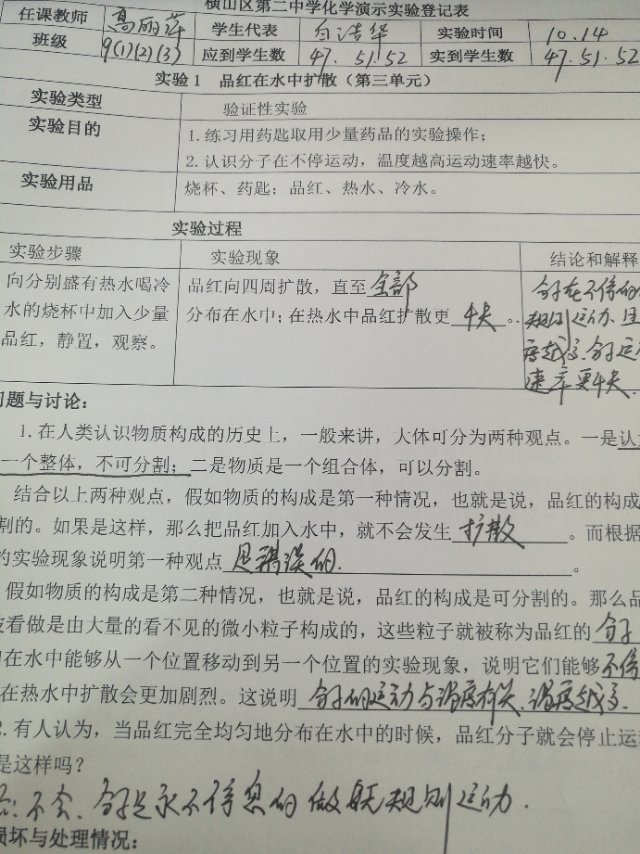 横山区第二中学化学演示实验登记表
任课教师 高丽萍 学生代表 白洁华 实验时间 10.14
班级 9(1)(2)(3) 应到学生数 47.51.52 实到学生数 47.51.52
实验1 品红在水中扩散（第三单元）
实验类型 验证性实验
实验目的 1.练习用药匙取用少量药品的实验操作；
2.认识分子在不停运动，温度越高运动速率越快。
实验用品 烧杯、药匙；品红、热水、冷水。
实验过程
实验步骤 实验现象 结论和解释
向分别盛有热水喝冷 品红向四周扩散，直至全部 分子在不停的
水的烧杯中加入少量 分布在水中；在热水中品红扩散更快。 规则运动、且
品红，静置，观察。 度越高、分子运
速率更快.
问题与讨论：
1.在人类认识物质构成的历史上，一般来讲，大体可分为两种观点。一是认
一个整体，不可分割；二是物质是一个组合体，可以分割。
结合以上两种观点，假如物质的构成是第一种情况，也就是说，品红的构成
割的。如果是这样，那么把品红加入水中，就不会发生扩散。而根据
的实验现象说明第一种观点是错误的.。
假如物质的构成是第二种情况，也就是说，品红的构成是可分割的。那么品
被看做是由大量的看不见的微小粒子构成的，这些粒子就被称为品红的分子
在水中能够从一个位置移动到另一个位置的实验现象，说明它们能够不停
在热水中扩散会更加剧烈。这说明分子的运动与温度有关、温度越高.
2.有人认为，当品红完全均匀地分布在水中的时候，品红分子就会停止运
是这样吗？
答：不会、分子是永不停息的做无规则运动.
损坏与处理情况：